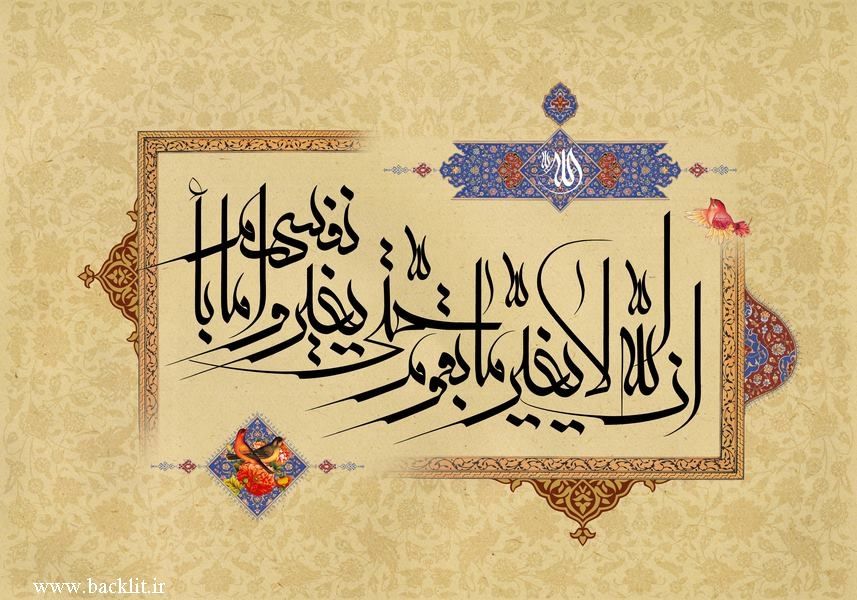 الله
ان الله لا یغیر ما بقوم حتّی یغیروا ما بأنفسهم
www.backlit.ir